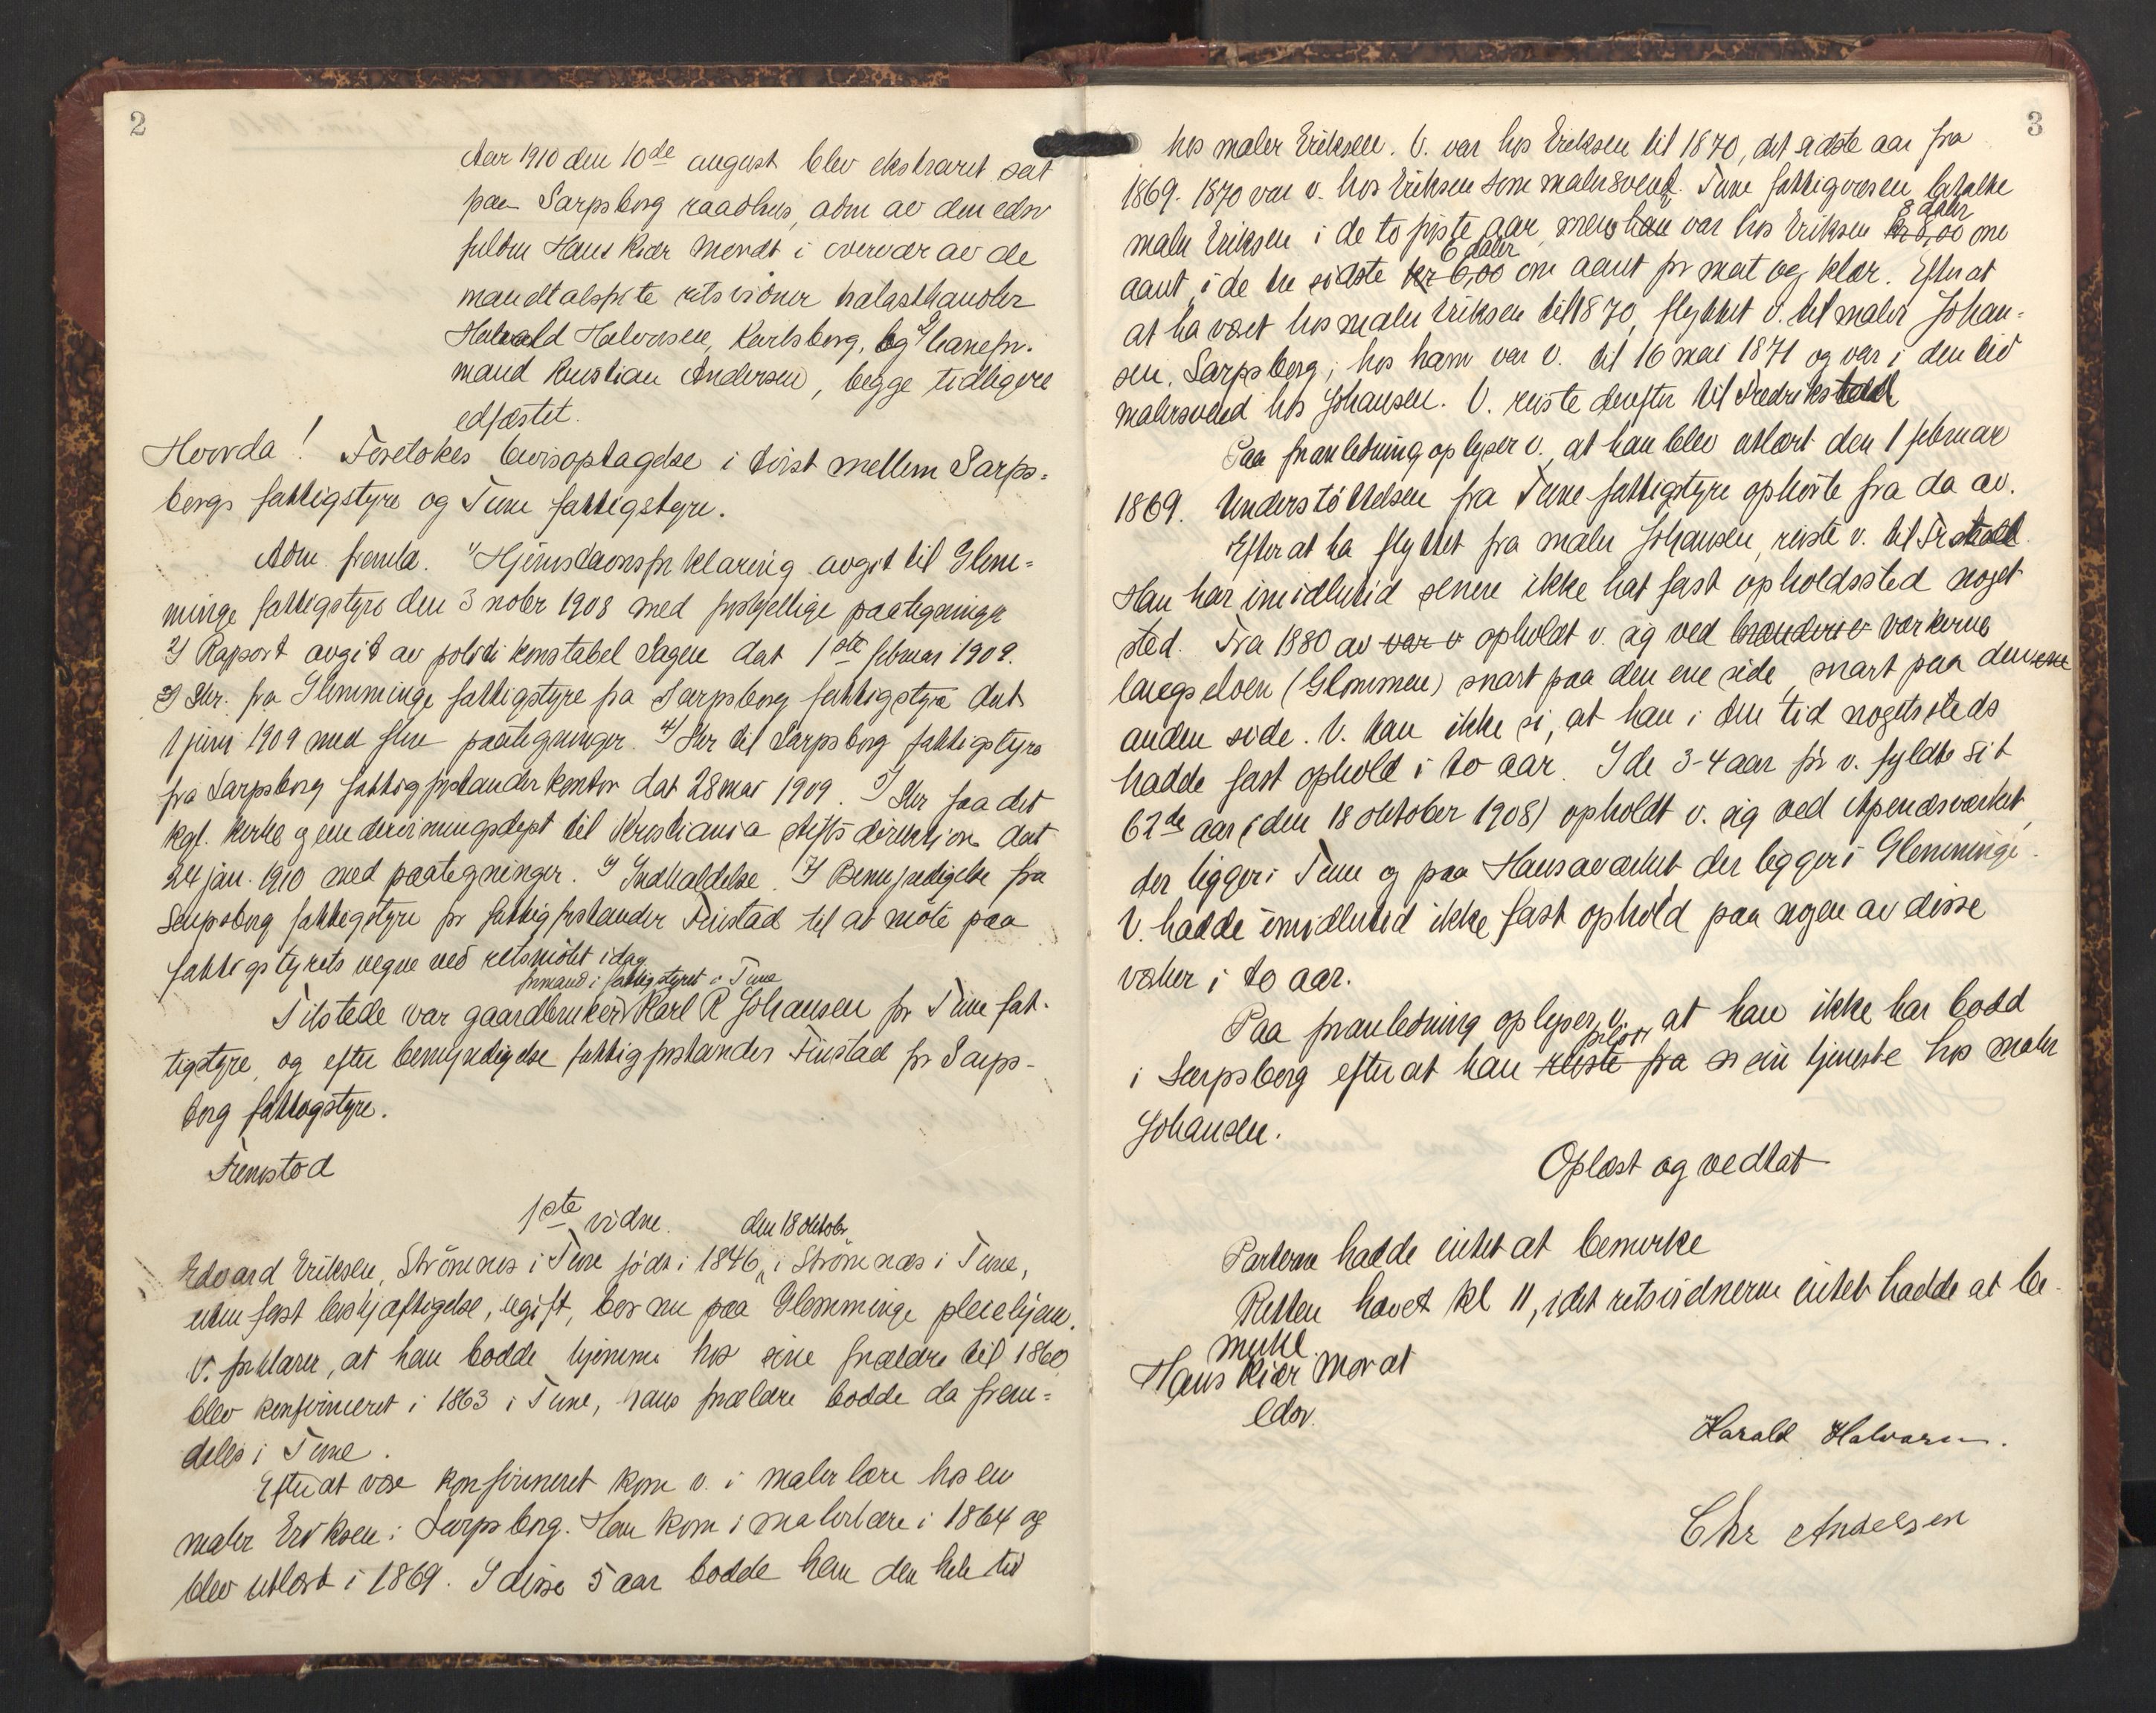 2
Aar 1910 den 10de august blev ekstraret sat
paa Sarpsborg raadhus, adm av den edsv
fuldm Hans Kiær Mordt i overvær av de
mandtalsførte retsvidner
Halvorsen, Karlsborg, og
mand Kristian Andersen, begge tidligere
edfæstet.
Hvorda! Foretokes bevisoptagelse i tvist mellem Sarps-
borgs fattigstyre og Tune fattigstyre.
Adm fremla. 1) Hjemstavnsforklaring avgit til Glem-
minge fattigstyre den 3 novbr 1908 med forskjellige paategninger
2) Rapport avgit av politikonstabel Sagen dat 1ste februar 1909.
3) Skr. fra Glemminge fattigstyre fra Sarpsborg fattigstyre dat
1 juni 1909 med flere paategninger. 4) Skr til Sarpsborg fattigstyre
fra Sarpsborg fattigforstanderkontor dat 28 mai 1909. 5) Skr fra det
kgl. kirke og undervisningsdept til Kristiania stiftsdirektion dat
24 jan. 1910 med paategninger. 6) Indkaldelse. 7) Bemyndigelse fra
Sarpsborg fattigstyre for fattigforstander Finstad til at møte paa
fattigstyrets vegne ved retsmøtet idag
formand i fattigstyret i Tune
Tilstede var gaardbruker Karl R Johansen for Tune fat-
tigstyre, og efter bemyndigelse fattigforstander Finstad for Sarps-
borg fattigstyre.
Fremstod
1ste vidne. den 18 oktober
Edvard Eriksen, Strømnes i Tune født i 1846, i Strømnæs i Tune,
uten fast beskjæftigelse, ugift, bor nu paa Glemminge pleiehjem.
V. forklarer, at han bodde hjemme hos sine forældre til 1860
blev konfirmeret i 1863 i Tune, hans forældre bodde da frem-
deles i Tune.
Efter at være konfirmeret kom v. i malerlære hos en
maler Eriksen i Sarpsborg. Han kom i malerlære i 1864 og
blev utlært i 1869. I disse 5 aar bodde han den hele tid
3
hos maler Eriksen. V. var hos Eriksen til 1870, det sidste aar fra
1869-1870 var v. hos Eriksen som malersvend. Tune fattigvæsen betalte
8 daler
maler Eriksen i de to første aar, mens han var hos Eriksen kr 8,00 om
6 daler
aaret, i de tre sidste kr 6,00 om aaret for mat og klær. Efter at
at ha været hos maler Eriksen til 1870, flyttet v. til maler Johan-
sen, Sarpsborg; hos ham var v. til 16 mai 1871 og var i den tid
malersvend hos Johansen. V. reiste derefter til Fredrikstad
Paa foranledning oplyser v. at han blev utlært den 1 februar
1869. Understøttelsen fra Tune fattigstyre ophørte fra da av.
Efter at ha flyttet fra maler Johansen, reiste v. til Frstad
Han har imidlertid senere ikke hat fast opholdssted noget
sted. Fra 1880 av var v opholdt v. sig ved brænderie værkerne
langs elven (Glommen) snart paa den ene side, snart paa den ene
anden side. V. kan ikke si, at han i den tid nogetsteds
hadde fast ophold i to aar. I de 3-4 aar før v. fyldte sit
62de aar (den 18 oktober 1908) opholdt v. sig ved Apenesværket,
der ligger i Tune og paa Hansaværket der ligger i Glemminge.
V. hadde imidlertid ikke fast ophold paa nogen av disse
værker i to aar.
Paa foranledning oplyser v. at han ikke har bodd
forlot
i Sarpsborg efter at han reiste fra sin tjeneste hos maler
Johansen.
Oplæst og vedtat
Parterne hadde intet at bemerke
Retten hævet kl 11, idet retsvidnerne intet hadde at be-
merke.
Hans Kiær Mordt
edsv.
Harald Halvorsen.
Chr Andersen